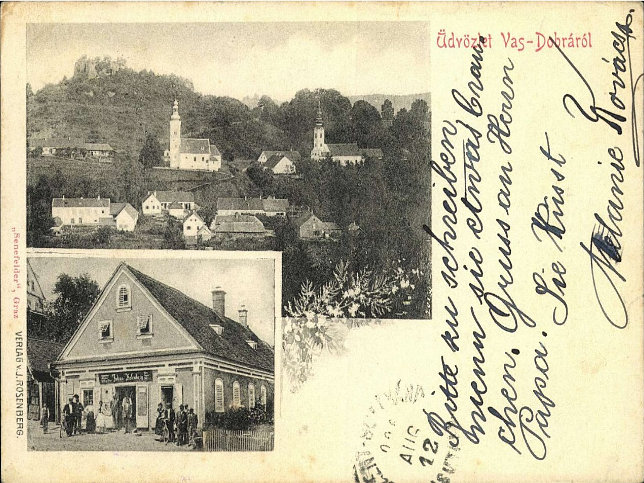 Üdvözlet Vas-Dobráról
Bitte zu schreiben
wenn sie etwas brau-
chen. Gruss an Herrn
Papa. Sie küsst
Melanie Kovács.
„Senefelder“, Graz
VERLAG v. J. ROSENBERG.
AUG
12